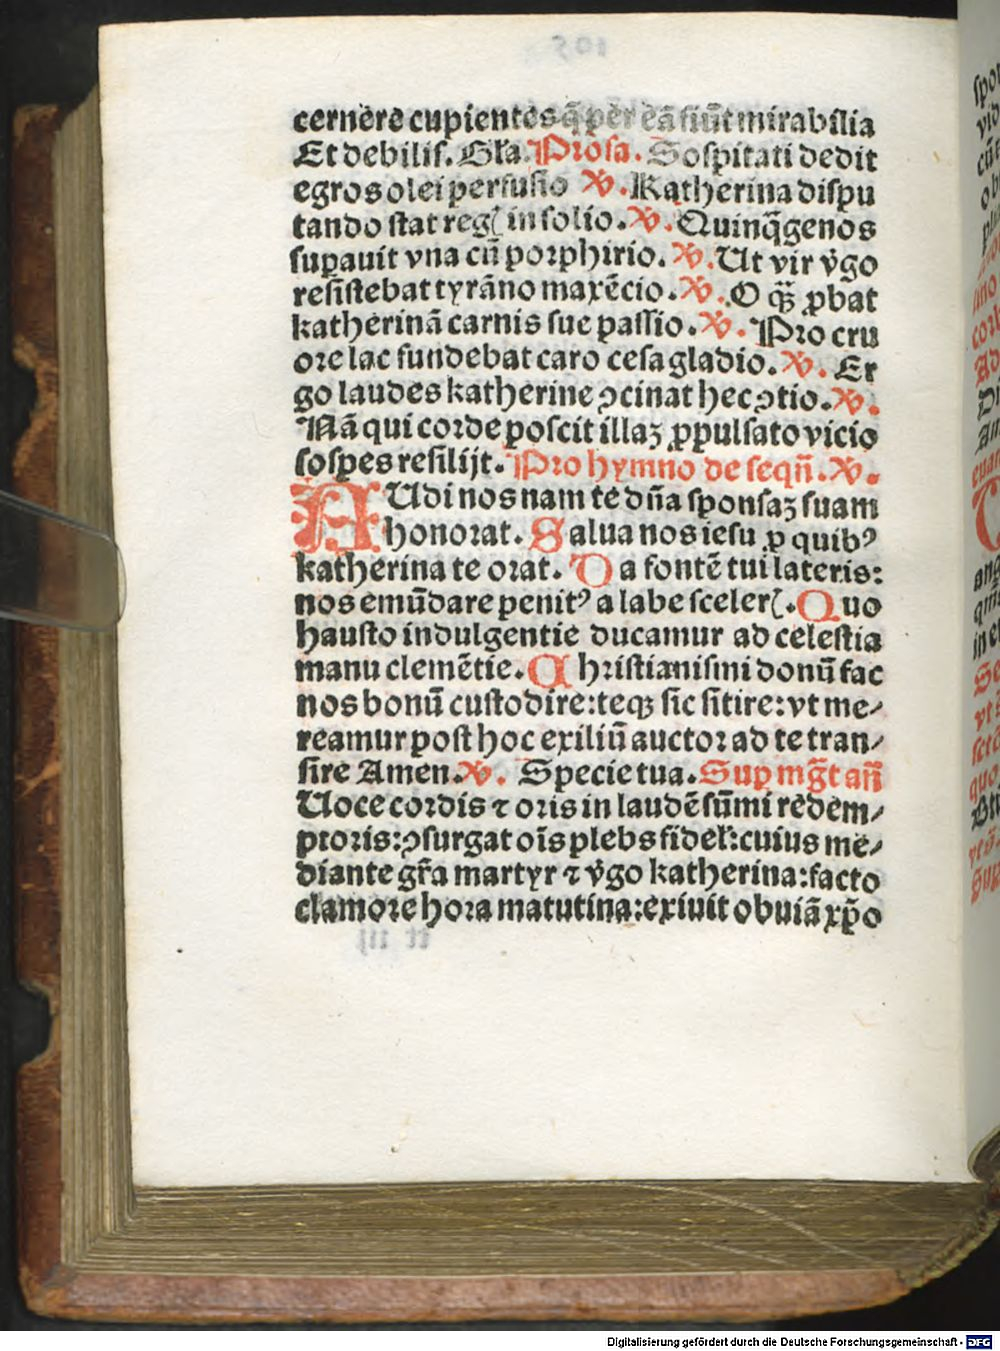 cernere cupientes q̃ per eã fiũt mirabilia
Et debilis. Gl̃a. Prosa. Sospitati dedit
egros olei perfusio ℣. Katherina dispu
tando stat regꝭ in solio. ℣. Quinq̃genos
suꝑauit vna cũ porphirio. ℣. Ut vir v̾go
resistebat tyrãno maxẽcio. ℣. O qͣꝫ ꝓbat
katherinã carnis sue passio. ℣. Pro cru
ore lac fundebat caro cesa gladio. ℣. Er
go laudes katherine ↄcinat hec ↄtio. ℣.
Nã qui corde poscit illaꝫ ꝓpulsato vicio
sospes resilijt. Pro hymno de seqñ. ℣.
AUdi nos nam te dña sponsaꝫ suam
honorat. Salua nos iesu ꝓ quibꝰ
katherina te orat. Da fontẽ tui lateris:
nos emũdare penitꝰ a labe scelerꝭ. Quo
hausto indulgentie ducamur ad celestia
manu clemẽtie. Christianismi donũ fac
nos bonũ custodire: teqꝫ sic sitire: vt me⸗
reamur post hoc exiliũ auctor ad te tran⸗
sire Amen. ℣. Specie tua. Suꝑ mg̃t añ
Uoce cordis ⁊ oris in laudẽ sũmi redem⸗
ptoris: ↄsurgat oĩs plebs fidel̃: cuius me⸗
diante gr̃a martyr ⁊ v̾go katherina: facto
clamore hora matutina: exiuit obuiã xp̃o
Digitalisierung gefördert durch die Deutsche Forschungsgemeinschaft - DFG